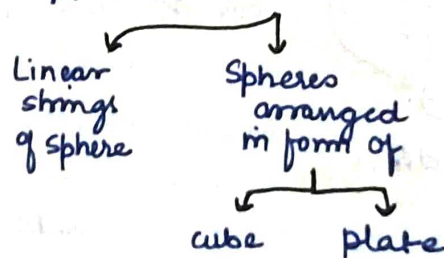 Linear
strings
of sphere
Spheres
arranged
in form of
cube
plate